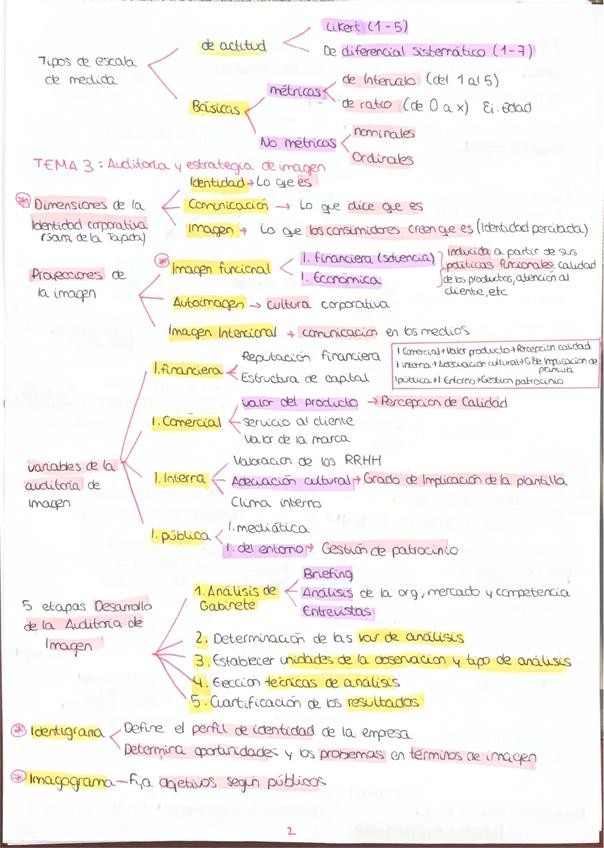 Likert (1-5)
de actitud
De diferencial sistemático (1-7)
Tipos de escala
de medida
métricas
de Intervalo (del 1 al 5)
Básicas
de ratio (de 0 a x) Ej. edad
No métricas
nominales
Ordinales
TEMA 3: Auditoria y estrategia de imagen
Identidad → Lo que es
* Dimensiones de la
Identidad corporativa
Comunicación → Lo que dice que es
Imagen → Lo que los consumidores creen que es (Identidad percibida)
* Imagen funcional
I. Financiera (solvencia)
I. Económica
inducida a partir de sus
políticas funcionales: calidad
de los productos, atención al
cliente, etc
Proyecciones de
la imagen
Autoimagen → cultura corporativa
Imagen Intencional → comunicación en los medios
I. Comercial + Valor producto + Percepcion calidad
I interna + Adecuación cultural + G. de Implicación de
plantilla
I pública + I Entorno + Gestion patrocinio
I. Financiera
Reputación financiera
Estructura de capital
I. Comercial
valor del producto → Percepcion de Calidad
servicio al cliente
Valor de la marca
variables de la
auditoria de
imagen
I. Interna
Valoracion de los RRHH
Adecuación cultural → Grado de Implicación de la plantilla
Clima interno
I. pública
I. mediática
I. del entorno → Gestión de patrocinio
5 etapas Desarrollo
de la Auditoria de
Imagen
1. Análisis de
Gabinete
Briefing
Análisis de la org, mercado y competencia
Entrevistas
2. Determinación de las var de análisis
3. Establecer unidades de la observacion y tipo de análisis
4. Eleccion técnicas de analisis
5. Cuantificación de los resultados
* Identigrama
Define el perfil de identidad de la empresa
Determina oportunidades y los problemas en términos de imagen
* Imagograma - Fija objetivos según públicos
2